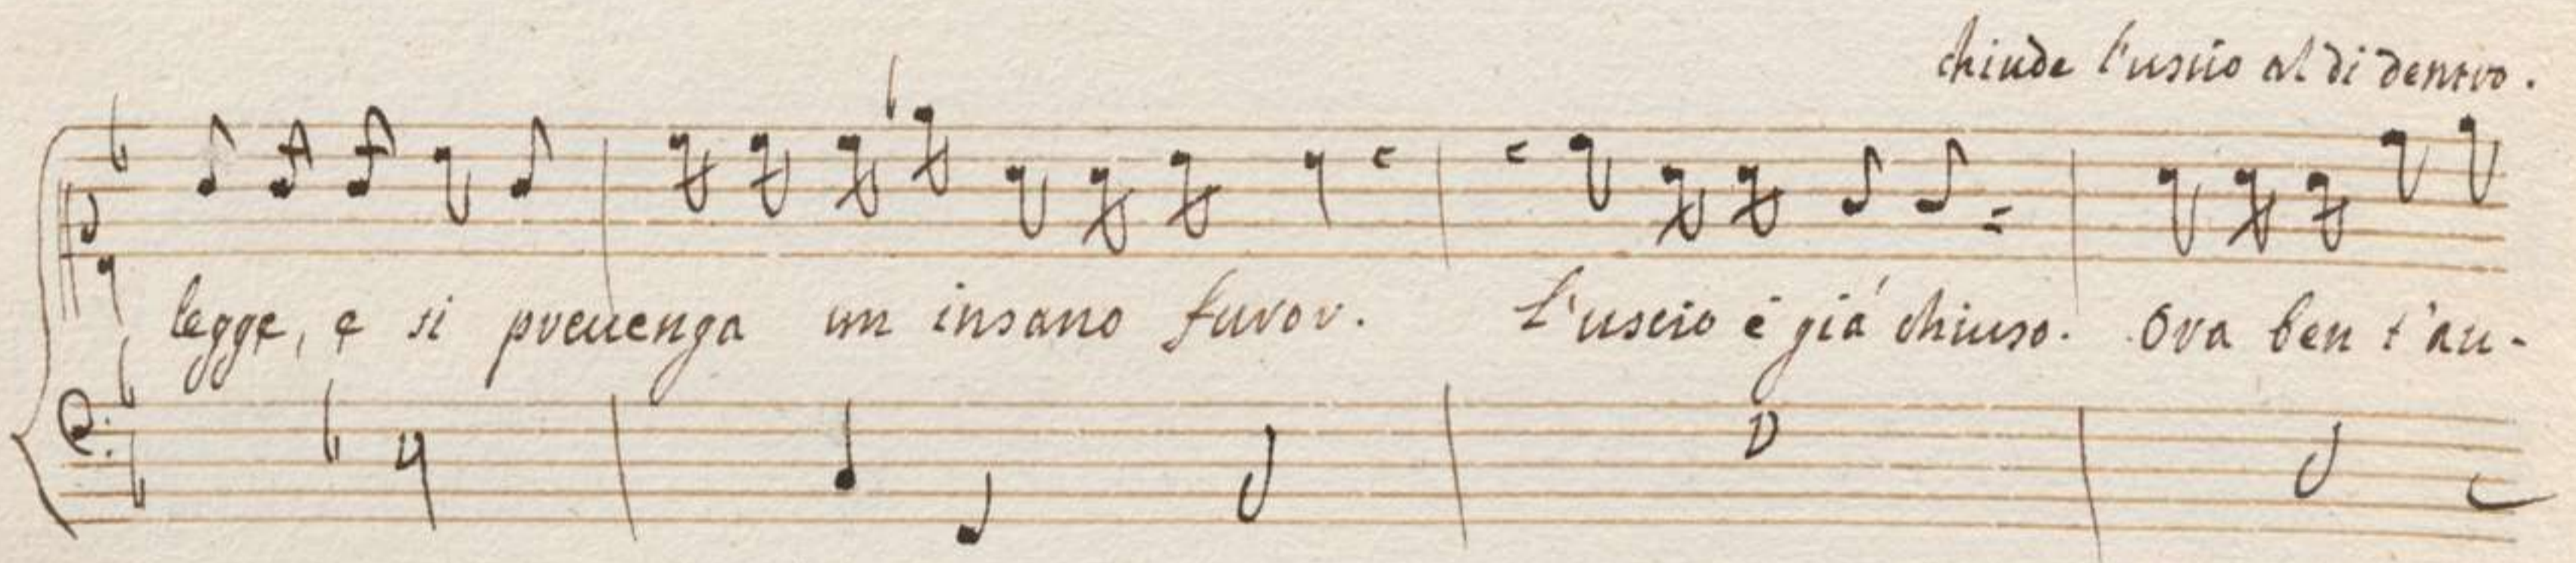 chiude l'uscio al di dentro.
legge, e si prevenga un insano furor. L'uscio è già chiuso. Ora ben t'au-